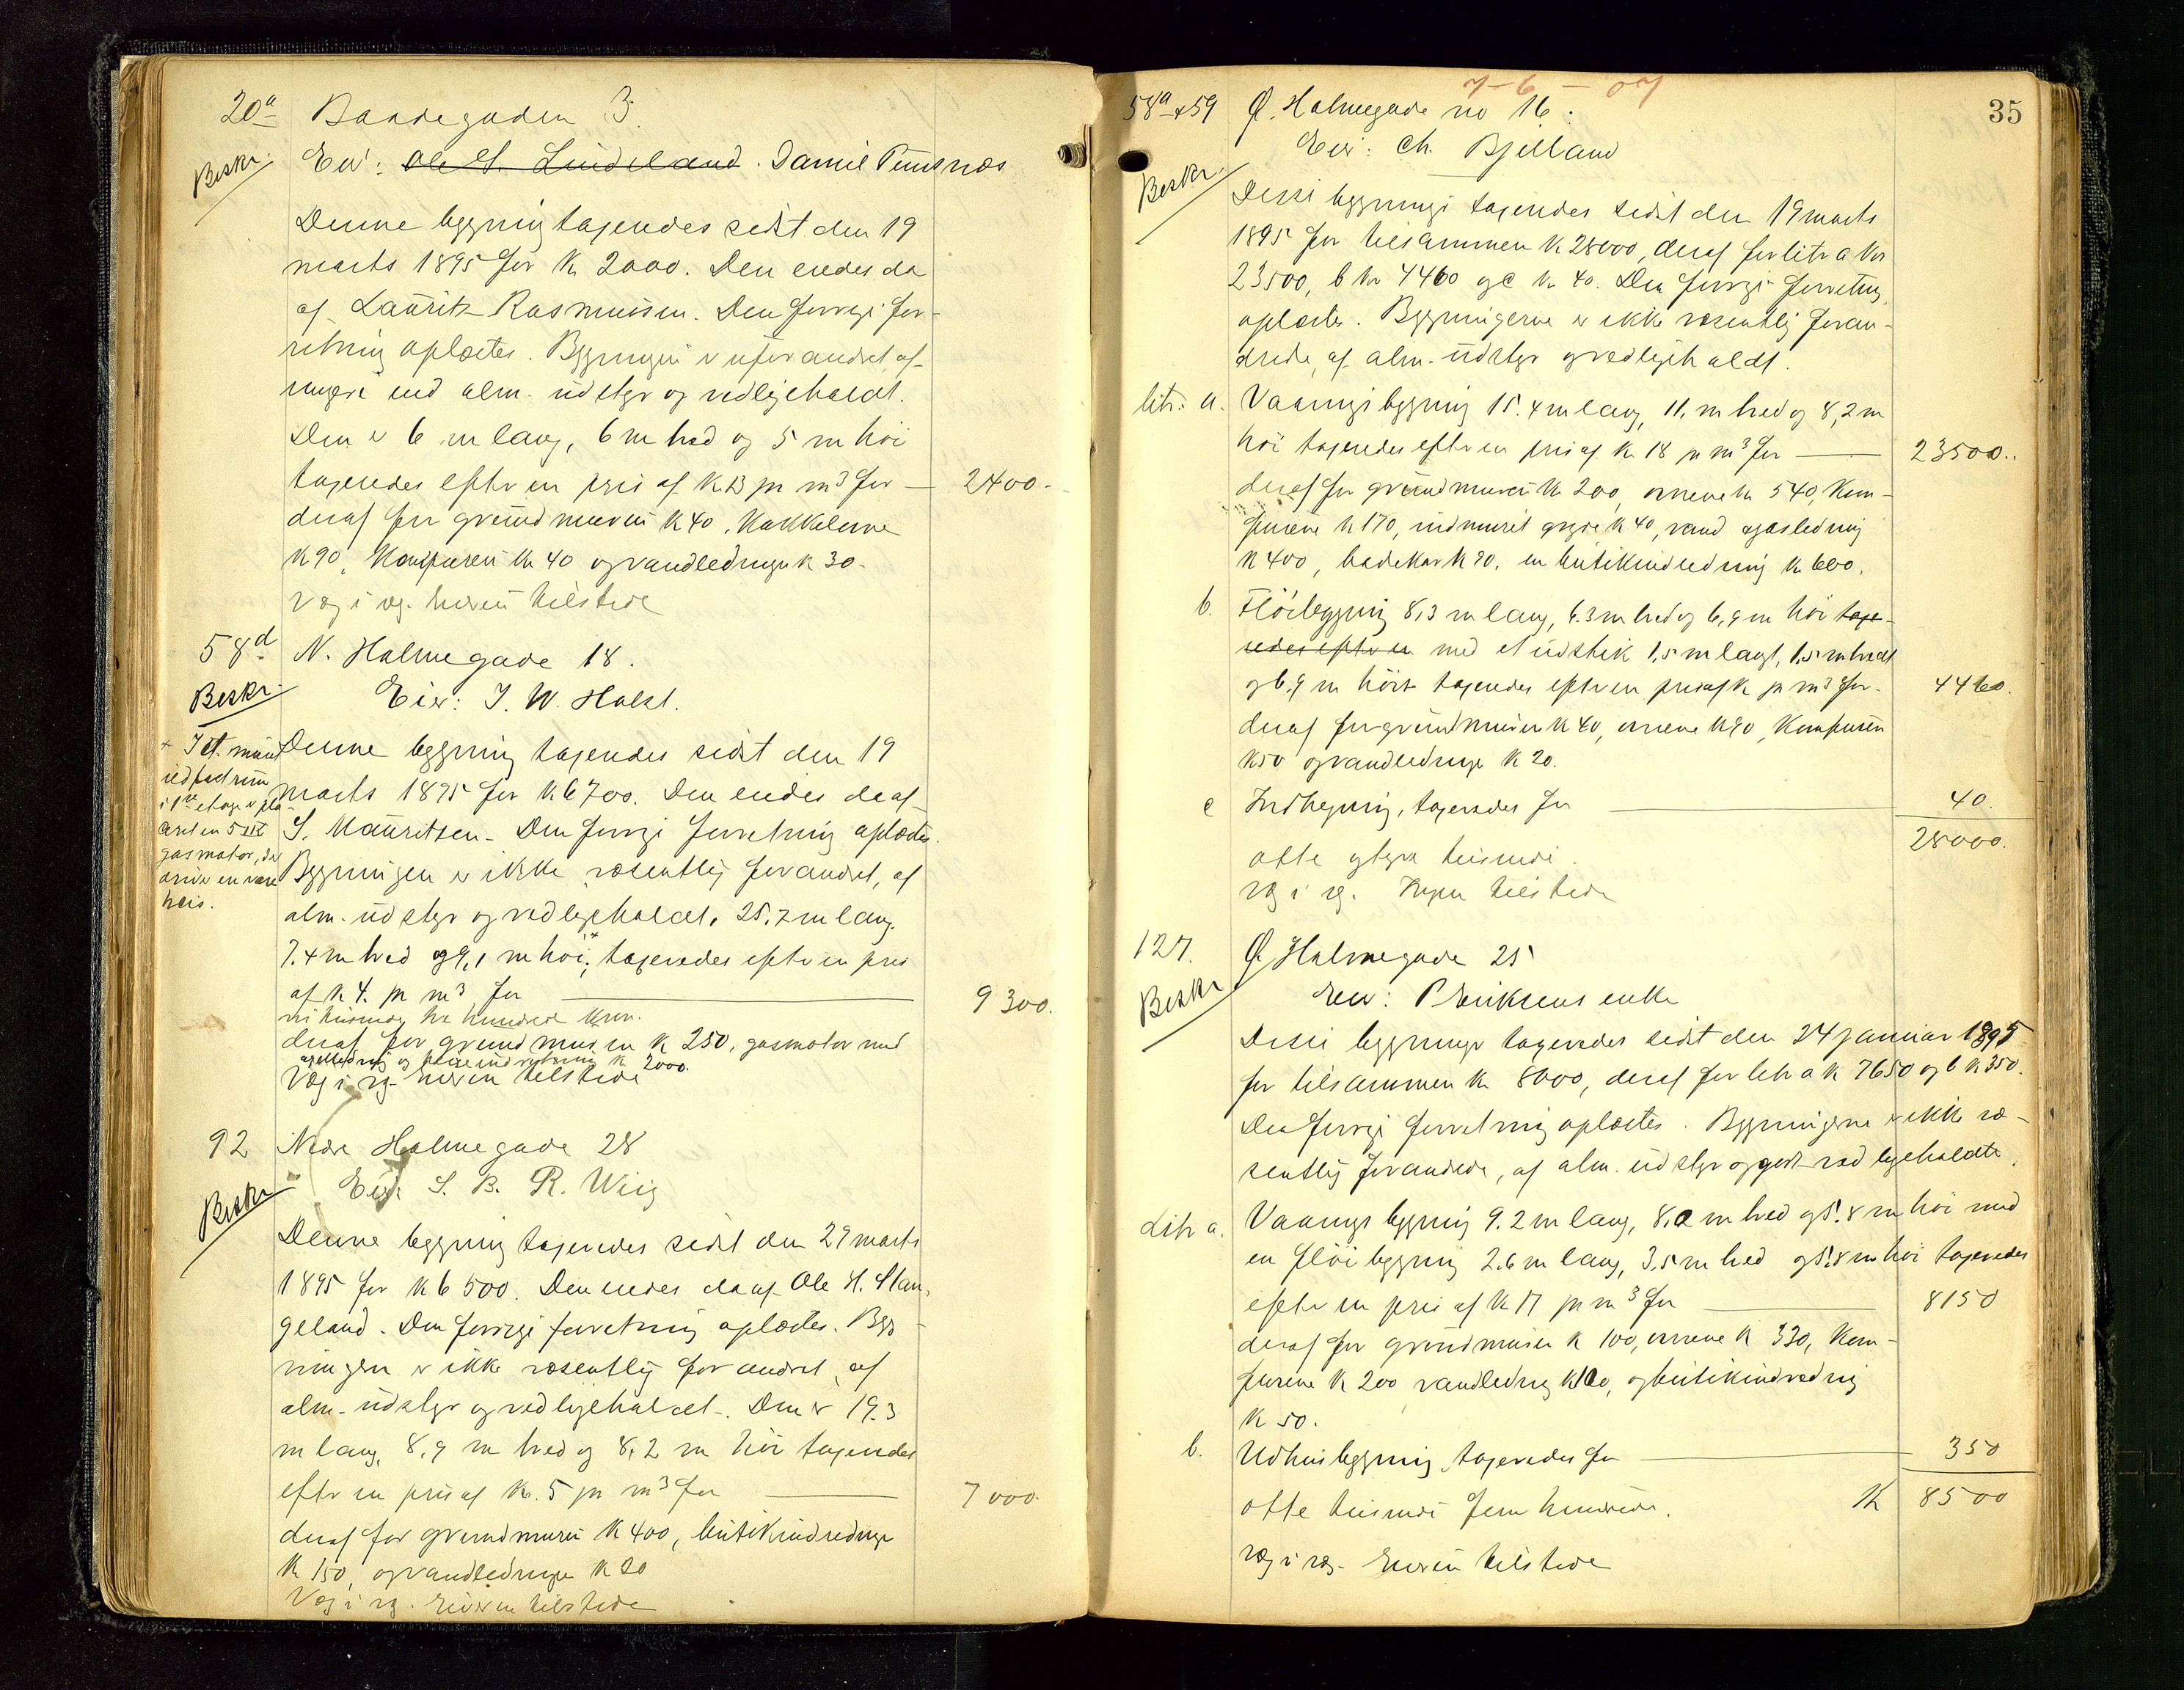 20a Bakkegaden 3.
Beskr. Eier: Ole G. Lindeland. Daniel Timsnæs
Denne bygning taxeredes sidst den 19
marts 1895 for K 2000. Den eiedes da
af Lauritz Rasmussen. Den forrige for-
retning oplæstes. Bygningen er uforandret, af
ringere end alm. udstyr og vedligeholdt.
Den er 6 m lang, 6 m bred og 5 m høi
taxeredes efter en pris af K 13 pr m3 for — 2400.-
deraf for grundmuren K 40, kakkelovne
K 90, komfuren K 40 og vandledningen K 30.
Væg i væg. Eieren tilstede
58d N. Holmegade 18.
Beskr. Eier: J. W. Holst.
+ I et muret
ildfast rum
i 1ste etage er pla-
ceret en 5 HK
gasmotor, der
driver en vare
heis.
Denne bygning taxeredes sidst den 19
marts 1895 for K 6700. Den eiedes da af
S. Mauritzen. Den forrige forretning oplæstes.
Bygningen er ikke væsentlig forandret, af
alm. udstyr og vedligeholdt. 25,7 m lang,
7.4 m bred og 9,1 m høi,+ taxeredes efter en pris
af K 4. pr m3 for — 9300.
ni tusinde tre hundrede kron.
deraf for grundmuren K 250, gasmotor med
K 2000.
Væg i væg. Eieren tilstede
92 Nedre Holmegade 28
Beskr. Eier S. B. R. Wiig
Denne bygning taxeredes sidst den 29 marts
1895 for K 6500. Den eiedes da af Ole H. Stan-
geland. Den forrige forretning oplæstes. Byg-
ningen er ikke væsentlig forandret, af
alm. udstyr og vedligeholdt. Den er 19.3
m lang, 8,9 m bred og 8,2 m høi taxeredes
efter en pris af Kr. 5 pr m3 for — 7000.
deraf for grundmuren K 400, butikindredning
K 150, og vandledningen K 20
Væg i væg. Eieren tilstede
7-6-07
35
58a+59 Ø. Holmegade no 16.
Eier: Ch. Bjelland
Beskr.
Disse bygninger taxeredes sidst den 19 marts
1895 for tilsammen K 28000, deraf for litr a kr
23500, b kr 4460 og c kr 40. Den forrige forretning
oplæstes. Bygningerne er ikke væsentlig foran-
drede, af alm. udstyr og vedligeholdt.
litr. a. Vaanings bygning 15.4 m lang, 11. m bred og 8,2 m
høi taxeredes efter en pris af K 18 pr m3 for — 23500..
deraf for grundmuren K 200, ovnene kr 540, kom-
furene K 170, indmuret gryde K 40, vand og gasledning
K 400, badekar K 90. en butikindredning K 600.
b. Fløibygning 8,3 m lang, 6.3 m bred og 6,9 m høi taxe-
redes efter en med et udstik 1,5 m langt, 1,5 m bredt
og 6,9 m høit taxeredes efter en pris af K pr m3 for - 4460.
deraf for grundmuren K 40, ovnene K 90, komfuren
K 50 og vandledninge K 20.
c Indhegning, taxeredes for — 40.
28000.
otte og tyve tusinde.
væg i væg. Ingen tilstede
127. Ø Holmegade 25
Beskr Eier: P Eriksens enke
Disse bygninger taxeredes sidst den 24 januar 1895
for tilsammen K 8000, deraf for litr a K 7650 og b K 350.
Den forrige forretning oplæstes. Bygningerne er ikke væ-
sentlig forandrede, af alm. udstyr og godt vedligeholdte.
Litr a. Vaanings bygning 9.2 m lang, 8,2 m bred og 5.8 m høi med
en fløi bygning 2.6 m lang, 3,5 m bred og 5.8 m høi taxeredes
efter en pris af K 17 pr m3 for — 8150
deraf for grundmuren K 100, ovnene K 330, kom-
furene K 200 vandledning K 100, og butikindredning
K 50.
b. Udhus bygning, taxeredes for — 350
otte tusinde fem hundrede. K 8500
væg i væg. Eieren tilstede